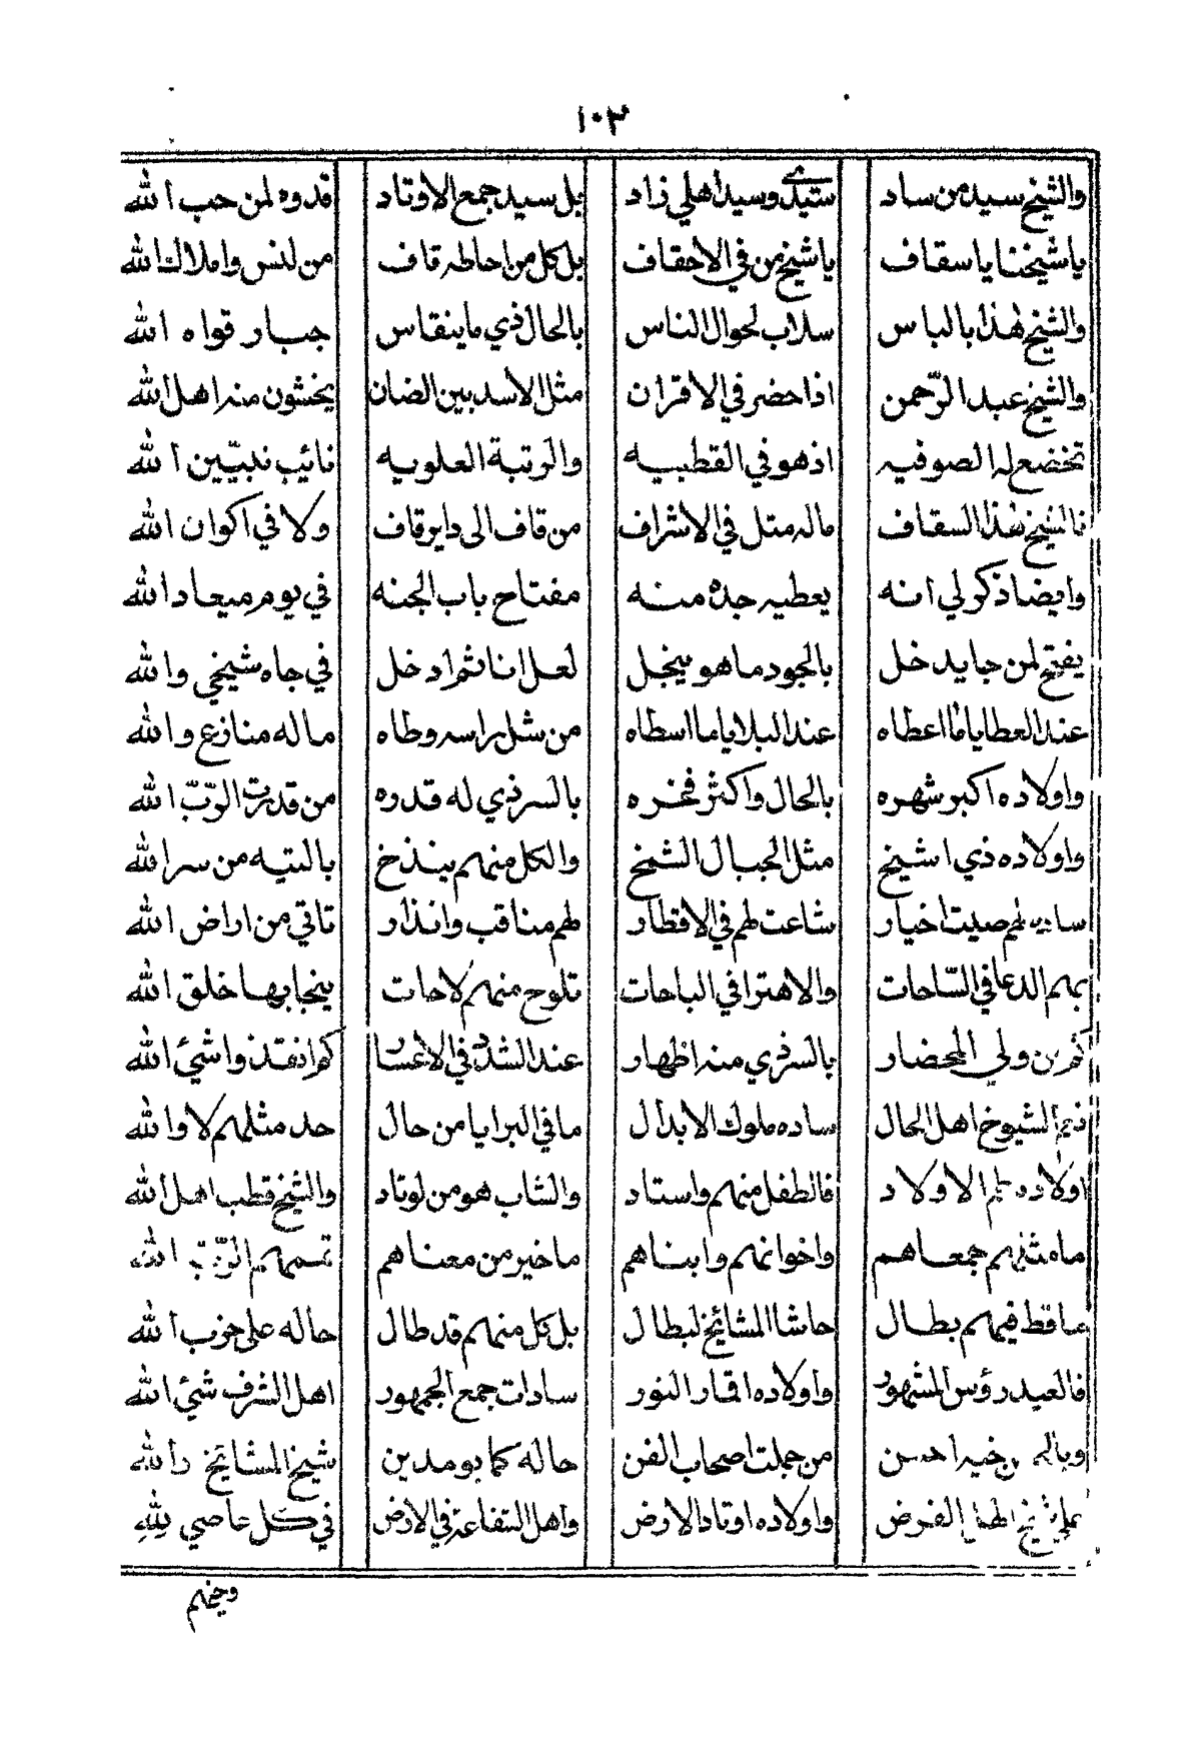 ١٠٣
والشيخ سيد من ساد سيدي وسيد اهلي زاد بل سيد جمع الاوتاد قدوه لمن حب الله
ياشيخنا ياسقاف ياشيخ من في الاحقاف بل كل من احاطه قاف من لنس واملاك الله
والشيخ هذا بالباس سلاب لحوال الناس بالحال ذي ماينقاس جبار قواه الله
والشيخ عبد الرّحمن اذا حضر في الاقران مثل الاسد بين الضان يخشون منه اهل الله
تخضع له الصوفيه اذهو في القطبيه والرتبة العلويه نائب نبيّين الله
فالشيخ هذا السقاف ماله مثل في الاشراف من قاف الى داير قاف ولا في اكوان الله
وايضا ذكر لي انه يعطيه جده منه مفتاح باب الجنه في يوم ميعاد الله
يفتح لمن جا يدخل بالجود ماهو يبخل لعل انا ثم ادخل في جاه شيخي والله
عند العطايا ما اعطاه عند البلايا ما اسطاه من شل براسه وطاه ماله منازع والله
واولاده اكبر شهره بالحال واكثر فخره بالسر ذي له قدوه من قدرت الرّبّ الله
واولاده ذي اشيخ مثل الجبال الشمخ والكل منهم يبنذخ بالتيه من سر الله
لهم صيت اخيار شاعت لهم في الاقطار لهم مناقب وانذار تاتي من اراض الله
بهم الدعا في السّاحات والاهترا في الباحات تلوح منهم لاحات ينجا بها خلق الله
كم من ولي المحضار بالسر ذي منه اظهار عند الشدد في الاعسار كم انقذ واشيئ الله
نعم الشيوخ اهل الحال ساده ملوك الابدال مافي البرايا من حال حد مثلهم لا والله
اولاده نعم الاولاد فالطفل منهم واستاد والشاب هو من لوتاد والشيخ قطب اهل الله
ما مثلهم جمعاهم واخوانهم وابناهم ما خير من معناهم الرّبّ الله
ماقط فيهم بطال حاشا المشائخ لبطال بل كل منهم قد طال حاله على حزب الله
فالعيدروس المشهور واولاده اقمار النور سادات جمع الجمهور اهل الشرف شيئ الله
احسن من جملت اصحاب الفن حاله كما بو مدين شيخ المشائخ والله
الفرض واولاده اوتاد الارض واهل الشفاعه في الارض في كل عاصي لله